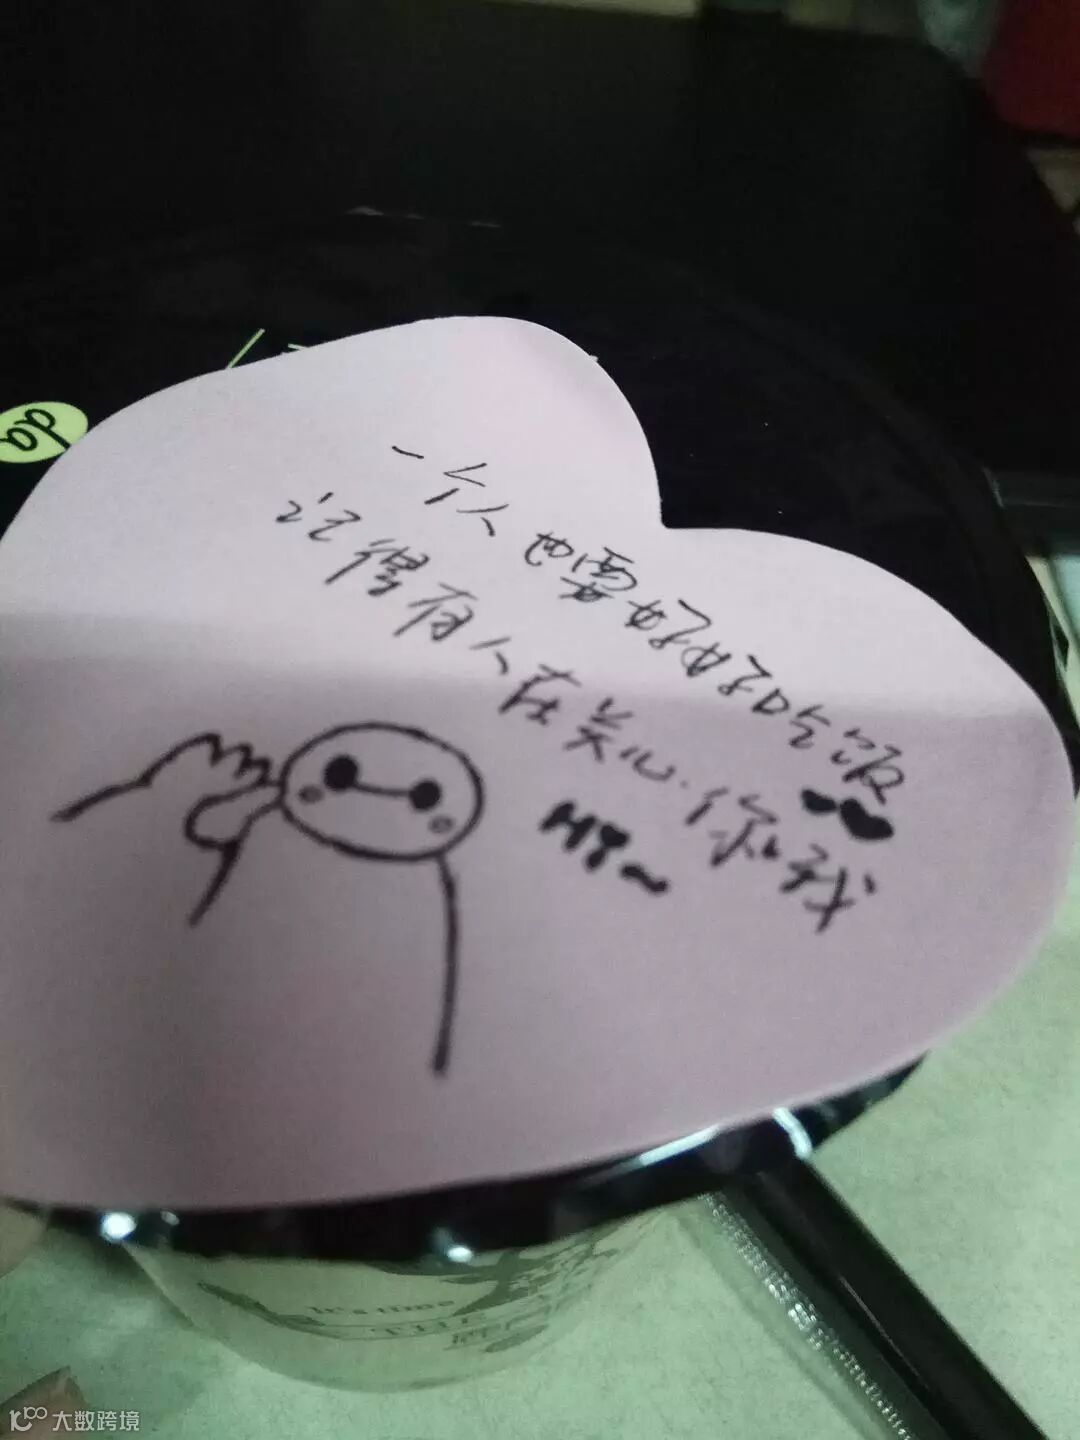 一个人也要好好吃饭
记得有人在关心.你和我
Hi~
da
It's time
THE
大数跨境